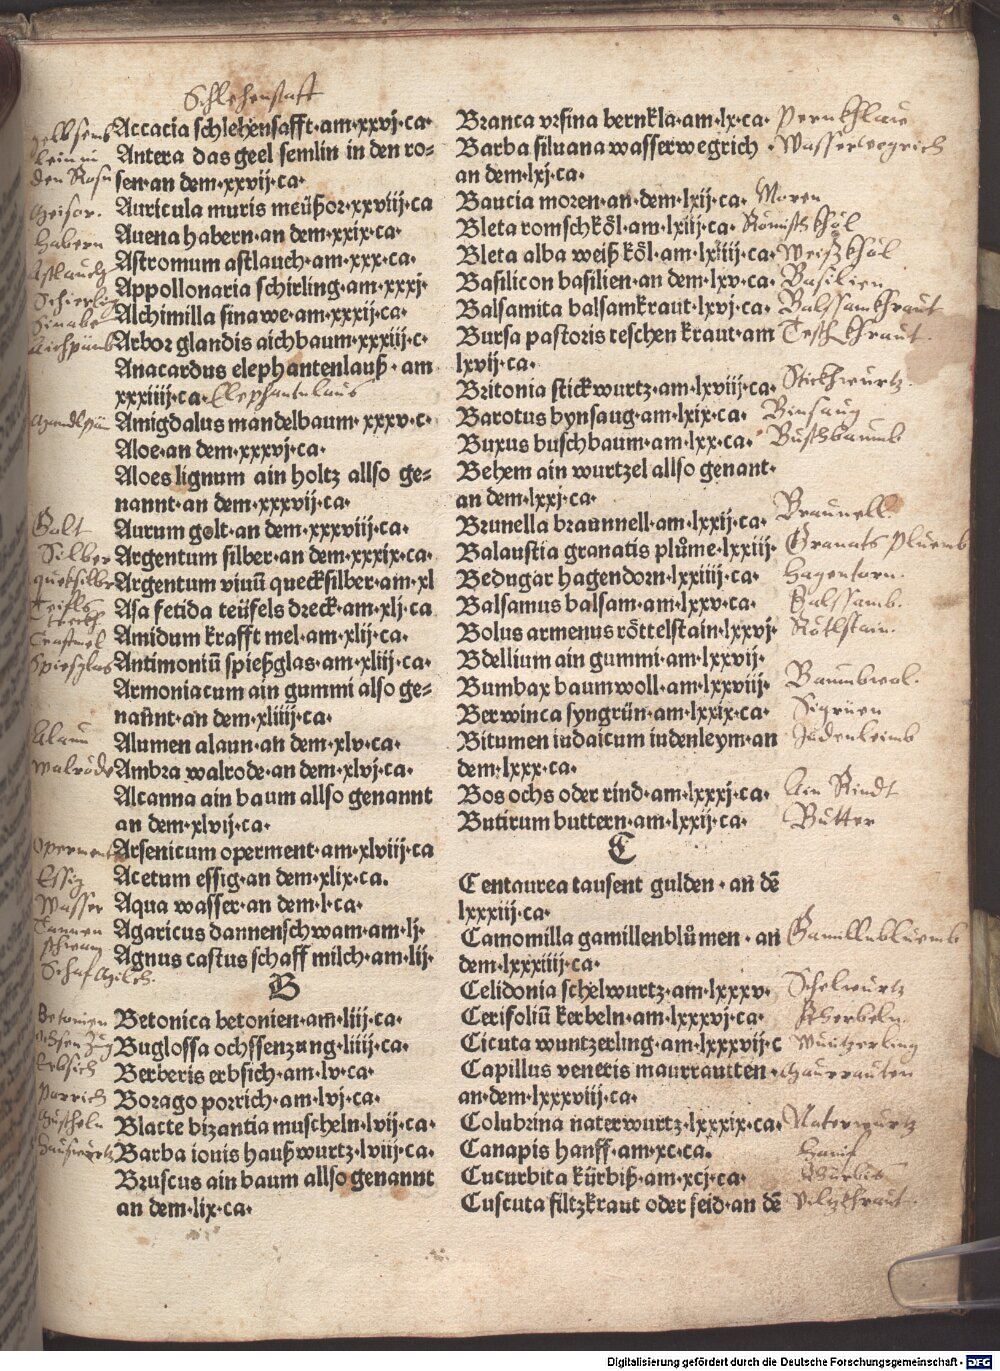 Schlehensafft
Accacia schlehensafft·am·xxvj·ca·
Antera das geel semlin in den ro=
sen·an dem·xxvij·ca·
Auricula muris meüßor·xxviij·ca
Auena habern·an dem·xxix·ca·
Astromum astlauch·am·xxx·ca·
Appollonaria schirling·am·xxxj·
Alchimilla sinawe·am·xxxij·ca·
Arbor glandis aichbaum·xxxiij·c·
Anacardus elephantenlauß·am
xxxiiij·ca· Elephantnlaus
Amigdalus mandelbaum·xxxv·c·
Aloe·an dem·xxxvj·ca·
Aloes lignum ain holtz allso ge=
nannt·an dem·xxxvij·ca·
Aurum golt·an dem·xxxviij·ca·
Argentum silber·an dem·xxxix·ca·
Argentum viuū quecksilber·am·xl
Asa fetida teüfels dreck·am·xlj·ca
Amidum krafft mel·am·xlij·ca·
Antimoniū spießglas·am·xliij·ca·
Armoniacum ain gummi also ge=
nannt·an dem·xliiij·ca·
Alumen alaun·an dem·xlv·ca·
Ambra walrode·an dem·xlvj·ca·
Alcanna ain baum allso genannt
an dem·xlvij·ca·
Arsenicum operment·am·xlviij·ca
Acetum essig·an dem·xlix·ca.
Aqua wasser·an dem·l·ca·
Agaricus dannenschwam·am·lj·
Agnus castus schaff milch·am·lij·
B
Betonica betonien·am·liij·ca·
Buglossa ochssenzung·liiij·ca·
Berberis erbsich·am·lv·ca·
Borago porrich·am·lvj·ca·
Blacte bizantia muscheln·lvij·ca·
Barba iouis haußwurtz·lviij·ca·
Bruscus ain baum allso genannt
an dem·lix·ca·
den Rosn
Habern
Golt
Silber
Spiesglas
Alaun
Walrode
Operment
Essig
Wasser
Tannen
schwam
Schaf Milch.
Betonien
Ochsen Zug
Erbsich
Porrich
Branca vrsina bernkla·am·lx·ca· Pernkhlaw
Barba siluana wasserwegrich · Wasserwegrich
an dem·lxj·ca·
Baucia moren·an·dem·lxij·ca· Moren
Bleta romschköl·am·lxiij·ca· Römisch khöl
Bleta alba weiß köl·am·lxiiij·ca· Weiß khöl
Basilicon basilien·an dem·lxv·ca· Basilien
Balsamita balsamkraut·lxvj·ca· Balssamkhraut
Bursa pastoris teschen kraut·am Tesch khraut
lxvij·ca·
Britonia stickwurtz·am·lxviij·ca· Stickhwurtz.
Barotus bynsaug·am·lxix·ca· Binsaug
Buxus buschbaum·am·lxx·ca· Buschbaumb
Behem ain wurtzel allso genant·
an dem·lxxj·ca·
Brunella braunnell·am·lxxij·ca· Braunell.
Balaustia granatis plůme·lxxiij· Granats Pluemb
Bedugar hagendorn·lxxiiij·ca· Hagentorn.
Balsamus balsam·am·lxxv·ca· Balssamb.
Bolus armenus röttelstain·lxxvj· Rötlstain.
Bdellium ain gummi·am·lxxvij·
Bumbax baumwoll·am·lxxviij· Baumbwol.
Berwinca syngrün·am·lxxix·ca· Sigrüen
Bitumen iudaicum iudenleym·an Judenleimb
dem·lxxx·ca·
Bos ochs oder rind·am·lxxxj·ca· Ain Rindt
Butirum buttern·am·lxxij·ca· Butter
C
Centaurea tausent gulden·an dē
lxxxiij·ca·
Camomilla gamillenblůmen·an Gamillnbluemb
dem·lxxxiiij·ca·
Celidonia schelwurtz·am·lxxxv· Schelwurtz
Cerifoliū kerbeln·am·lxxxvj·ca· Kherbeln.
Cicuta wuntzerling·am·lxxxvij·c Wuntzerling
Capillus veneris maurrautten· Maurrauten
an·dem·lxxxviij·ca·
Colubrina naterwurtz·lxxxix·ca· Naterwurtz
Canapis hanff·am·xc·ca. Hanif
Cucurbita kürbiß·am·xcj·ca·
Cuscuta filtzkraut oder seid·an dē Vilzkhraut.
Digitalisierung gefördert durch die Deutsche Forschungsgemeinschaft - DFG